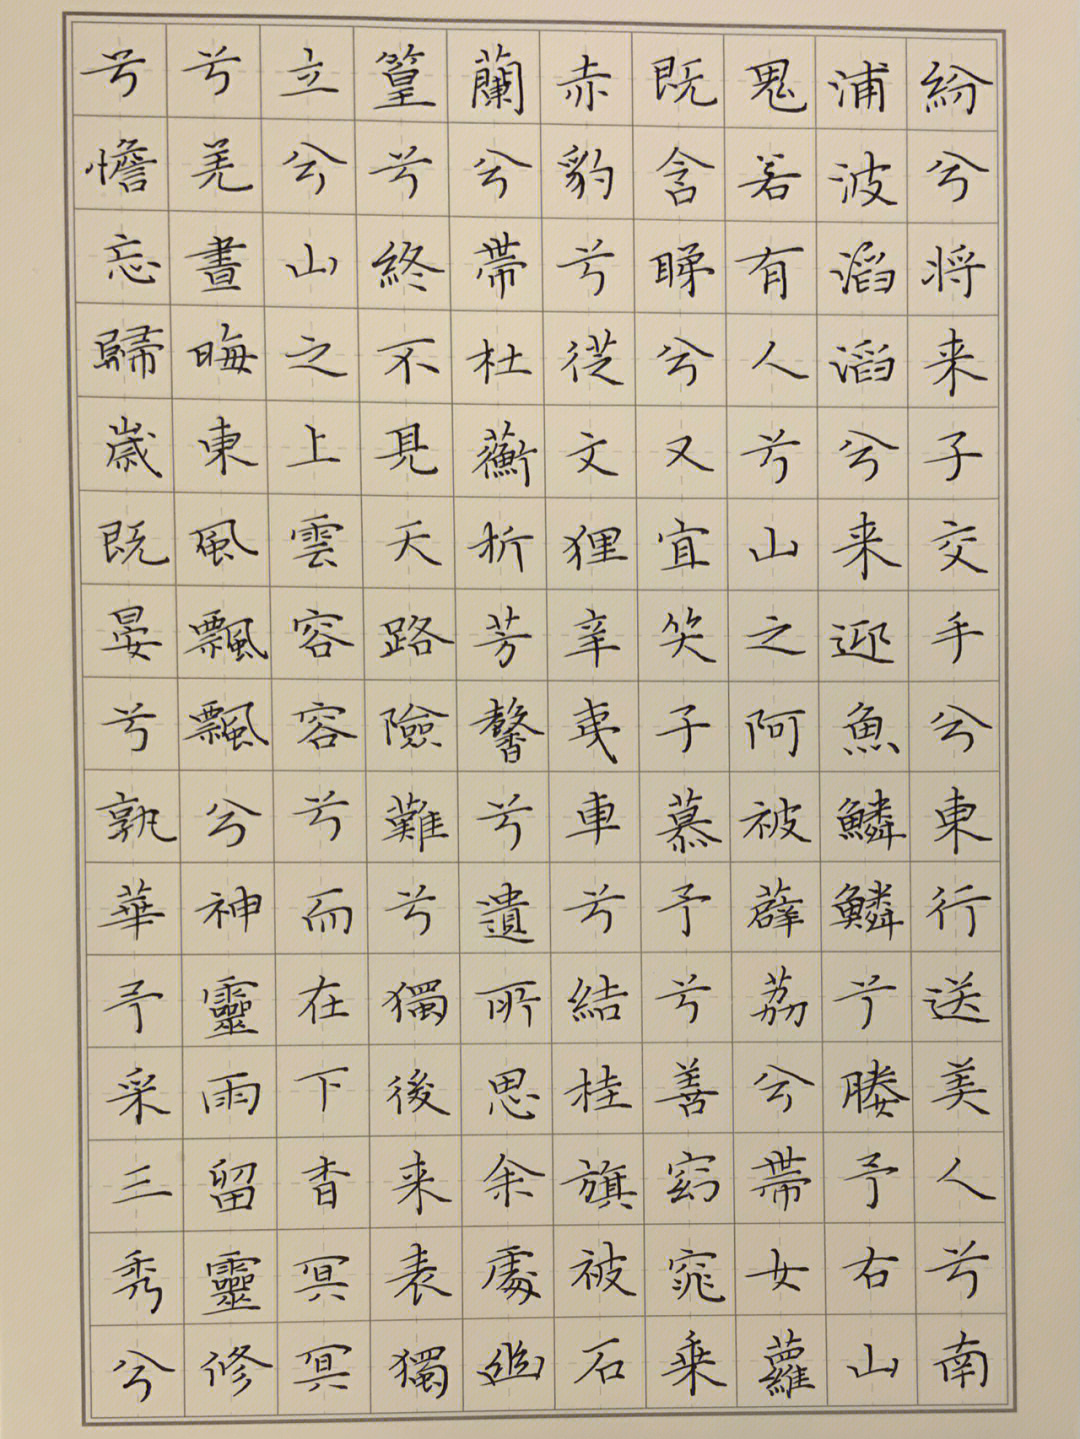 紛兮将来子交手兮東行送美人兮南
浦波滔滔兮来迎魚鱗鱗兮媵予右山
鬼若有人兮山之阿被薜荔兮帶女蘿
既含睇兮又宜笑子慕予兮善窈窕乗
赤豹兮從文狸辛夷車兮結桂旗被石
蘭兮帶杜蘅折芳馨兮遺所思余處幽
篁兮終不見天路險難兮獨後来表獨
立兮山之上雲容容兮而在下杳冥冥
兮羌晝晦東風飄飄兮神靈雨留靈修
兮憺忘歸歲既晏兮孰華予采三秀兮